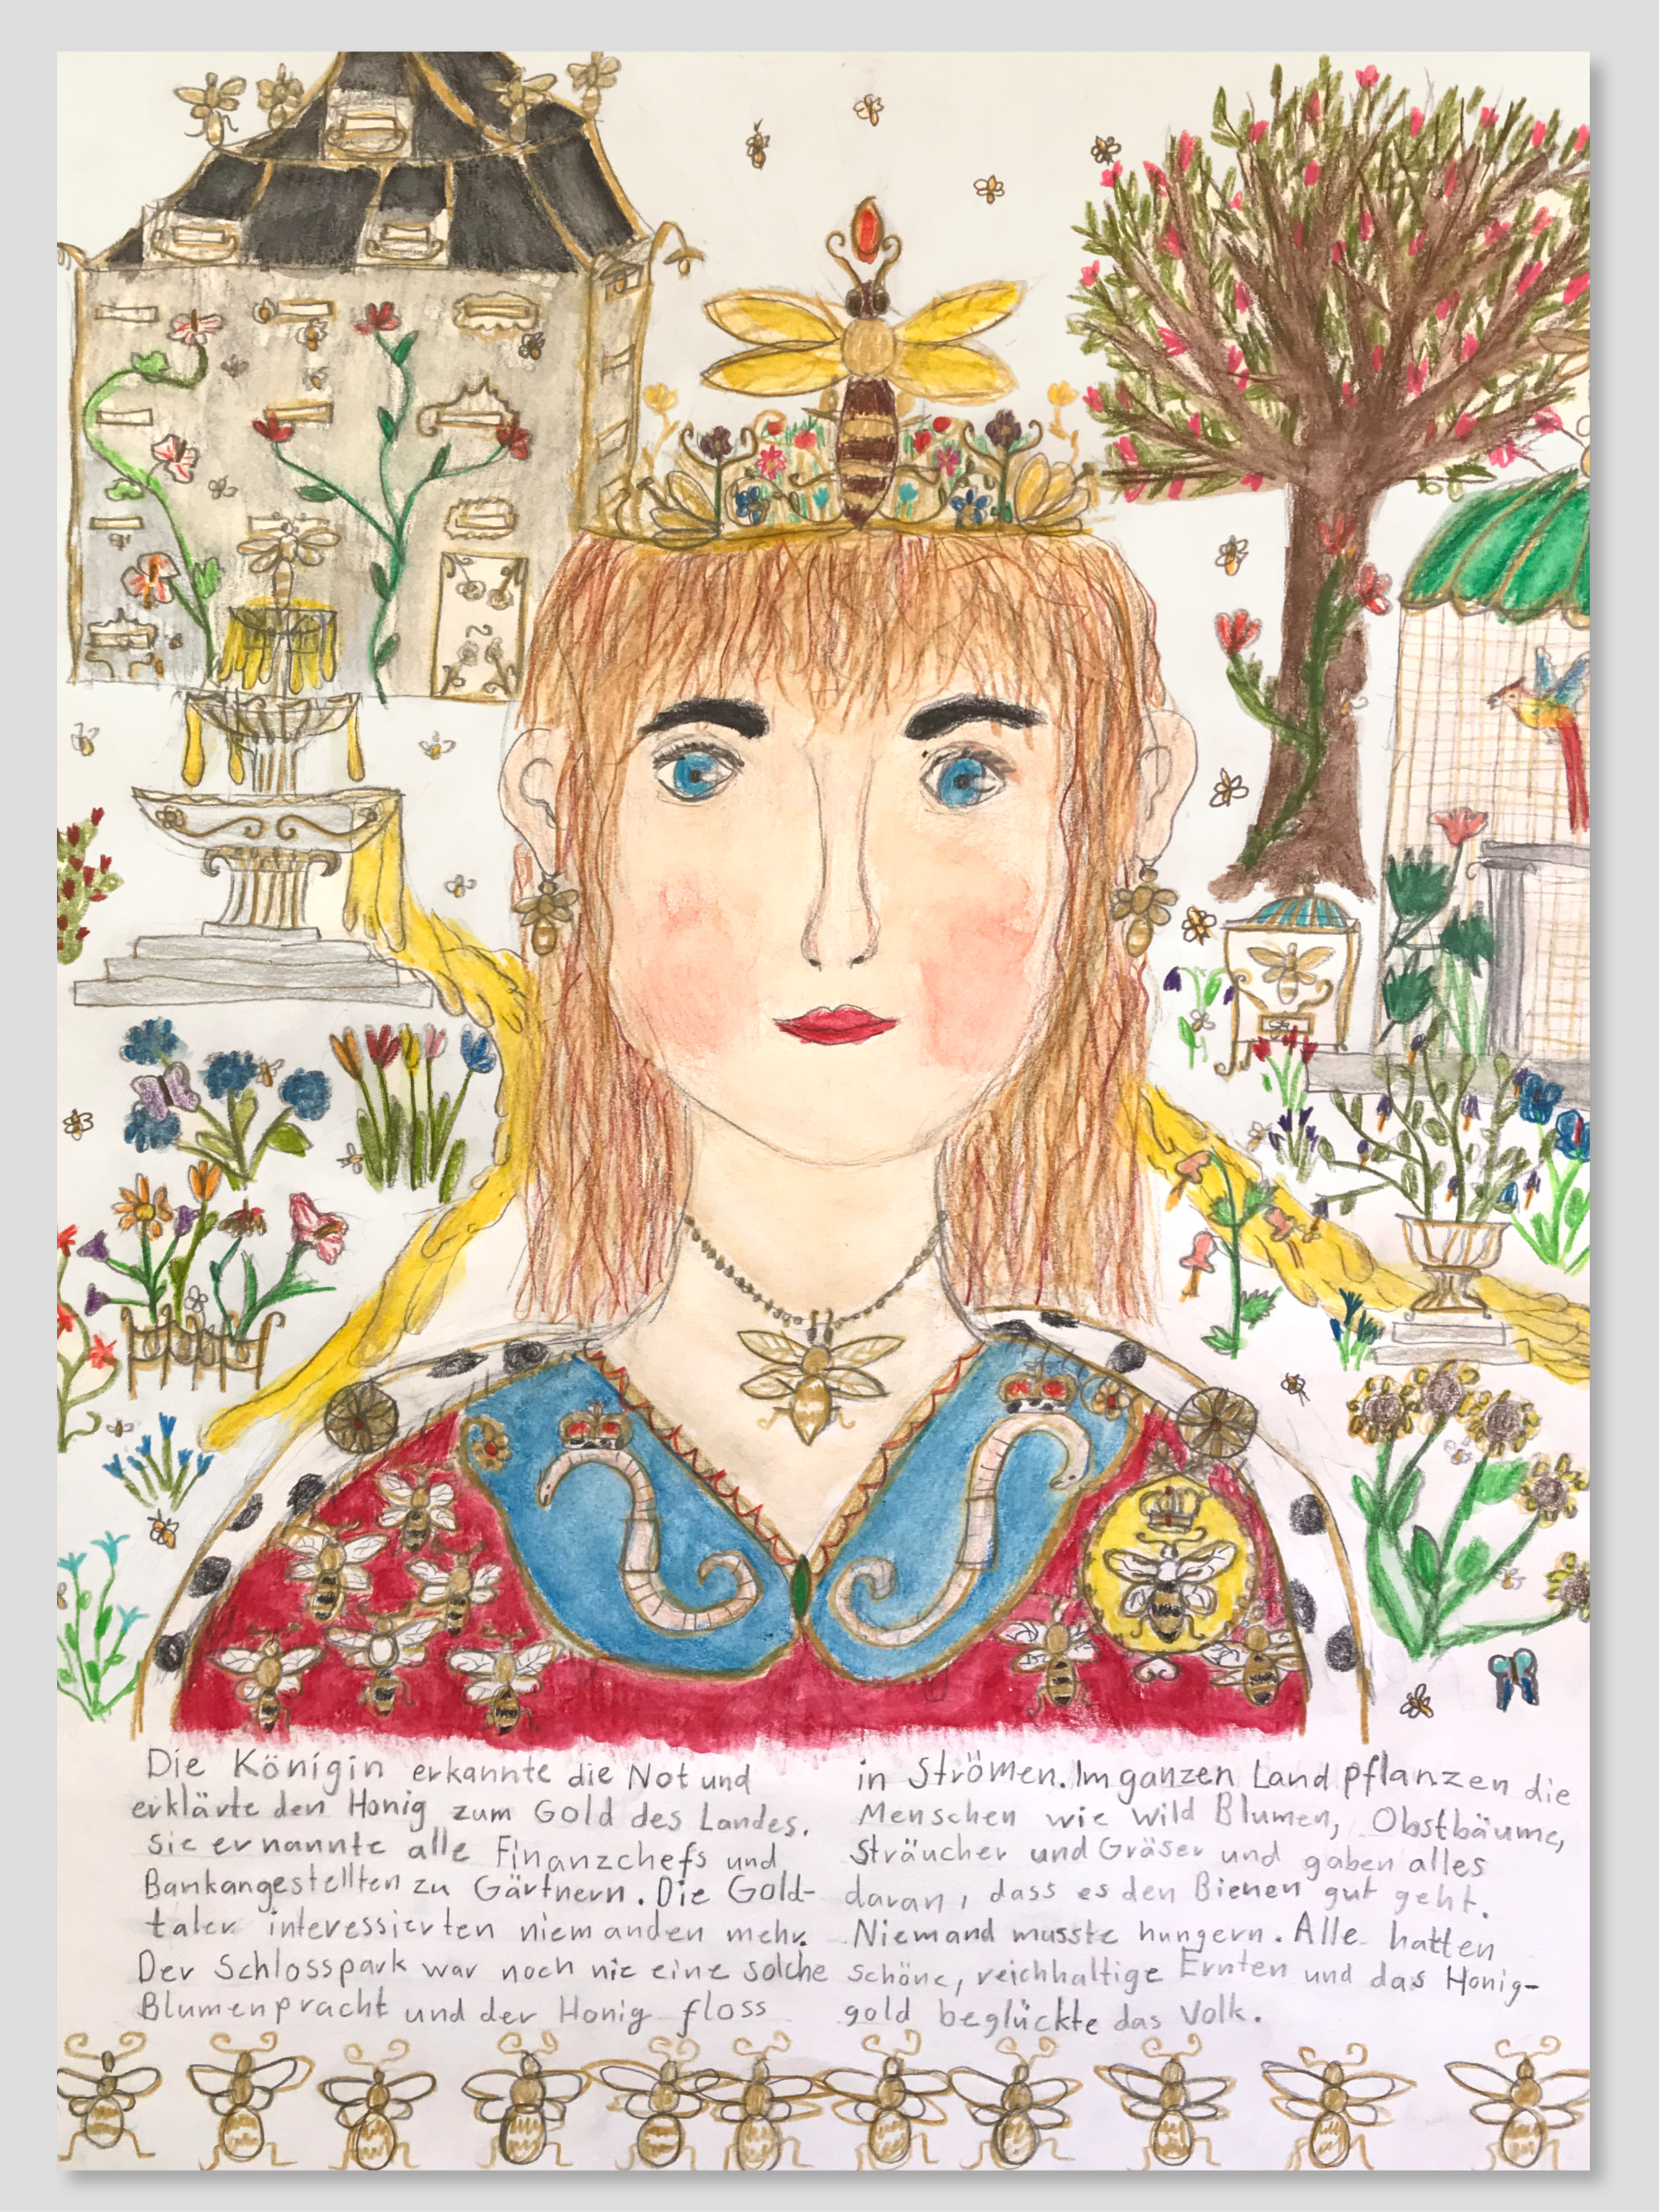 Die Königin erkannte die Not und
erklärte den Honig zum Gold des Landes.
Sie ernannte alle Finanzchefs und
Bankangestellten zu Gärtnern. Die Gold-
taler interessierten niemanden mehr.
Der Schlosspark war noch nie eine solche
Blumenpracht und der Honig floss
in Strömen. Im ganzen Land pflanzen die
Menschen wie wild Blumen, Obstbäume,
Sträucher und Gräser und gaben alles
daran, dass es den Bienen gut geht.
Niemand musste hungern. Alle hatten
schöne, reichhaltige Ernten und das Honig-
gold beglückte das Volk.